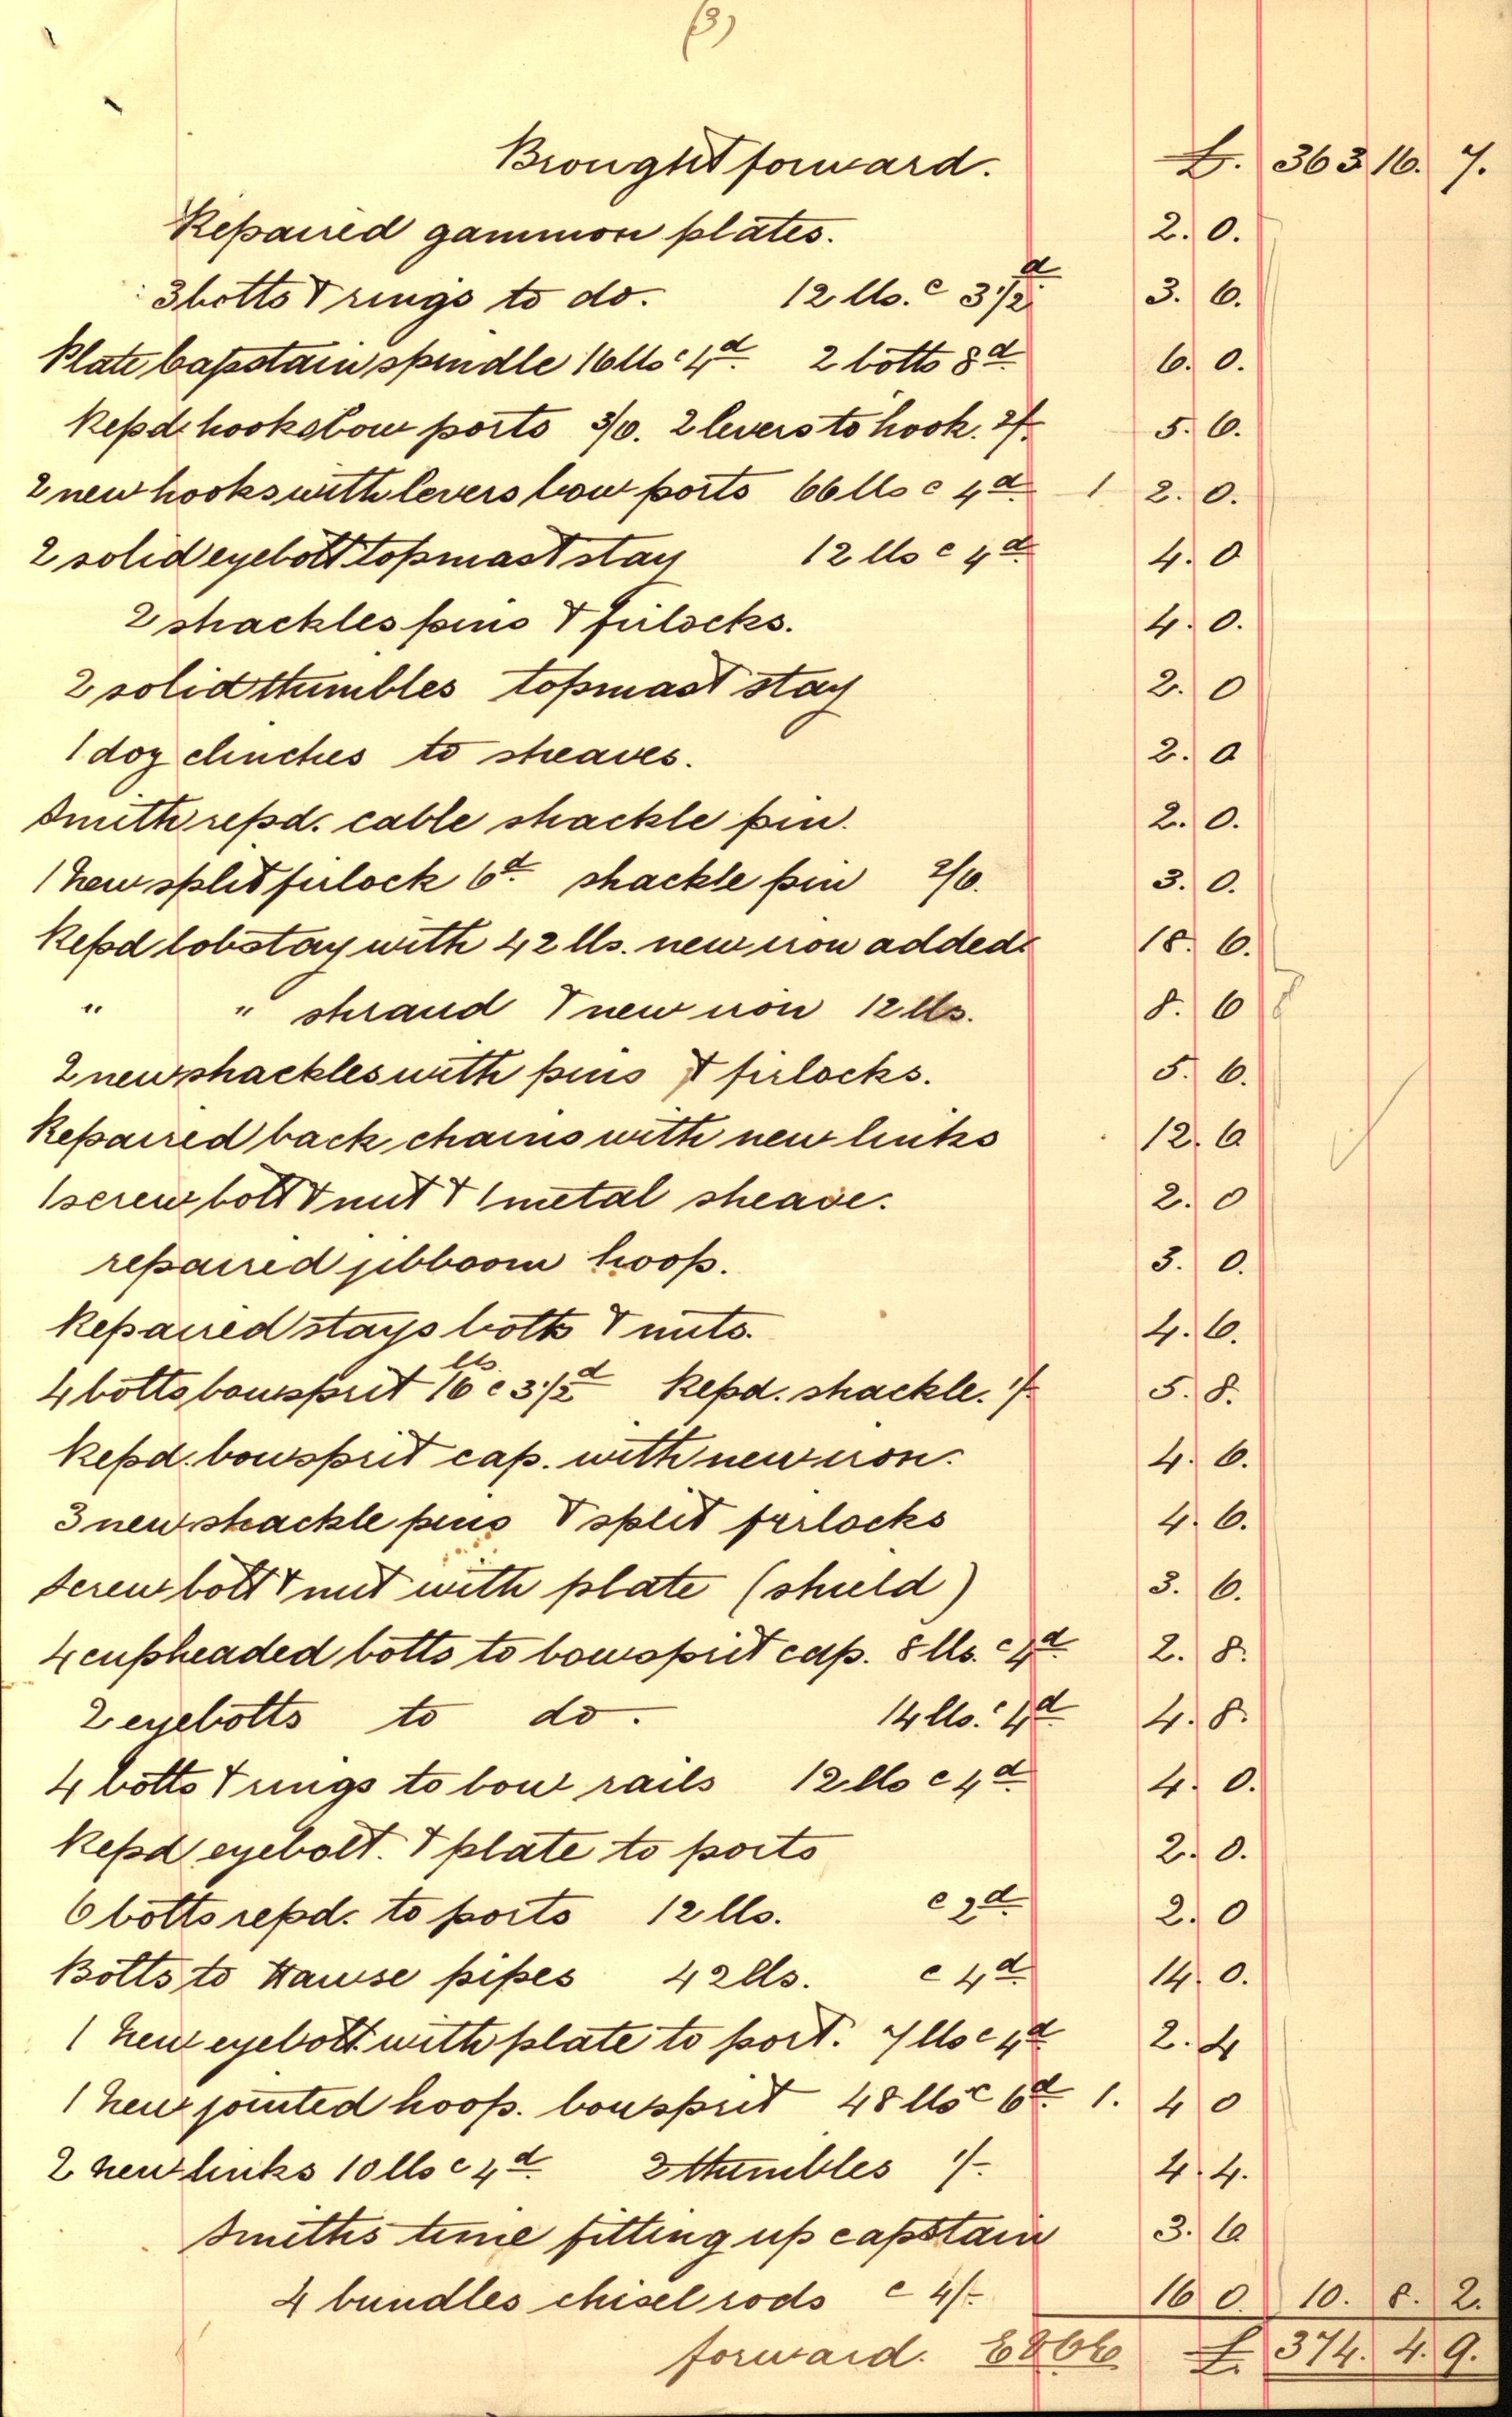 (3)
Brought forward. £. 363 16. 7.
Repaired gammon plates. 2. 0.
3 bolts & rings to do. 12 lbs. @ 3 1/2d 3. 6.
Plate Capstain spindle 16 lbs @ 4d. 2 bolts 8d 6. 0.
Repd. hooks bow ports 3/6. 2 levers to hook. 2/- 5. 6.
2 new hooks with levers bow ports 66 lbs @ 4d. 1 2. 0.
2 solid eyebolt topmast stay 12 lbs @ 4d. 4. 0
2 shackles pins & firlocks. 4. 0.
2 solid thimbles topmast stay 2. 0
1 doz clinches to sheaves. 2. 0
Smith repd. cable shackle pin. 2. 0.
1 new split firlock 6d. shackle pin 2/6. 3. 0.
Repd bobstay with 42 lbs. new iron added. 18. 6.
" " shraud & new iron 12 lbs. 8. 6
2 new shackles with pins & firlocks. 5. 6.
Repaired back chains with new links 12. 6
1 screw bolt & nut & 1 metal sheave. 2. 0
repaired jibboom hoop. 3. 0.
Repaired stays bolts & nuts. 4. 6.
4 bolts bowsprit 16 lbs. @ 3 1/2d Repd. shackle. 1/- 5. 8.
Repd. bowsprit cap. with new iron. 4. 6.
3 new shackle pins & split firlocks 4. 6.
Screw bolt & nut with plate (shield) 3. 6.
4 cupheaded bolts to bowsprit cap. 8 lbs. @ 4d 2. 8.
2 eyebolts to do. 14 lbs. @ 4d 4. 8.
4 bolts & rings to bow rails 12 lbs @ 4d. 4. 0.
Repd eyebolt. & plate to ports 2. 0.
6 bolts repd. to ports 12 lbs. @ 2d. 2. 0
Bolts to Hawse pipes 42 lbs. @ 4d. 14. 0.
1 new eyebolt with plate to port. 7 lbs @ 4d 2. 4
1 new jointed hoop. bowsprit 48 lbs @ 6d. 1. 4 0
2 new links 10 lbs @ 4d. 2 thimbles 1/- 4. 4.
Smiths time fitting up capstain 3. 6
4 bundles chisel rods @ 4/- 16 0 10. 8. 2.
forward. £ 374. 4. 9.